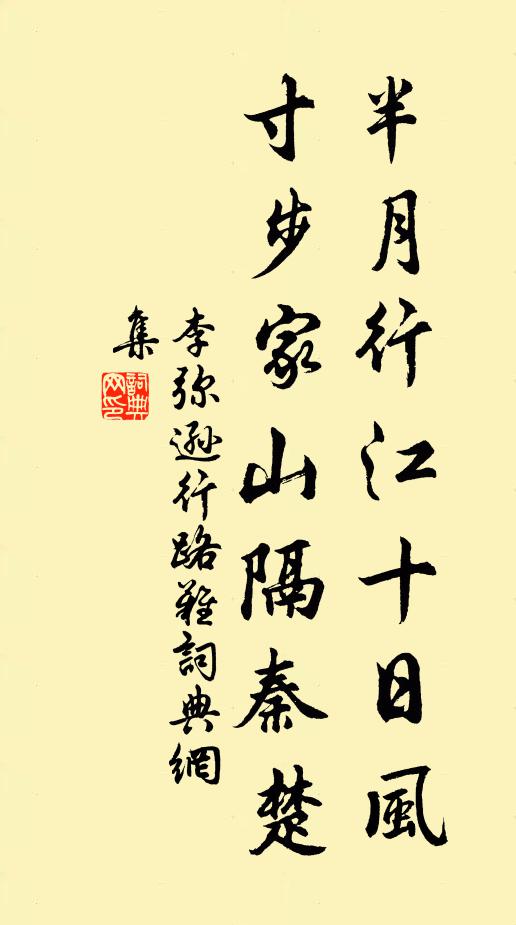 半月行江十日風
寸步家山隔秦楚
李弥遜行路難詞典網
集
詞典
网印